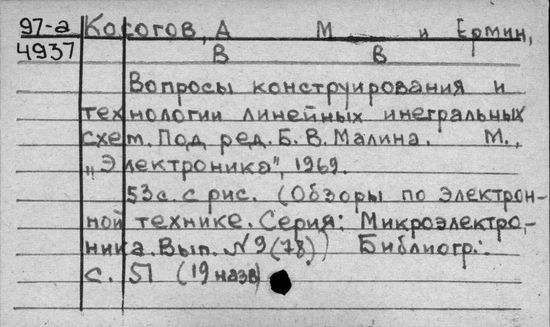 97-а Косогов, А М и Ермин,
4937 В В
Вопросы конструирования и
технологии линейных инегральных
схем. Под ред. Б. В. Малина. М.,
„Электроника", 1969.
53 с. с рис. (Обзоры по электрон-
ной технике. Серия: Микроэлектро-
ника. Вып. №9 (78)) Библиогр.:
с. 51 (19 назв)